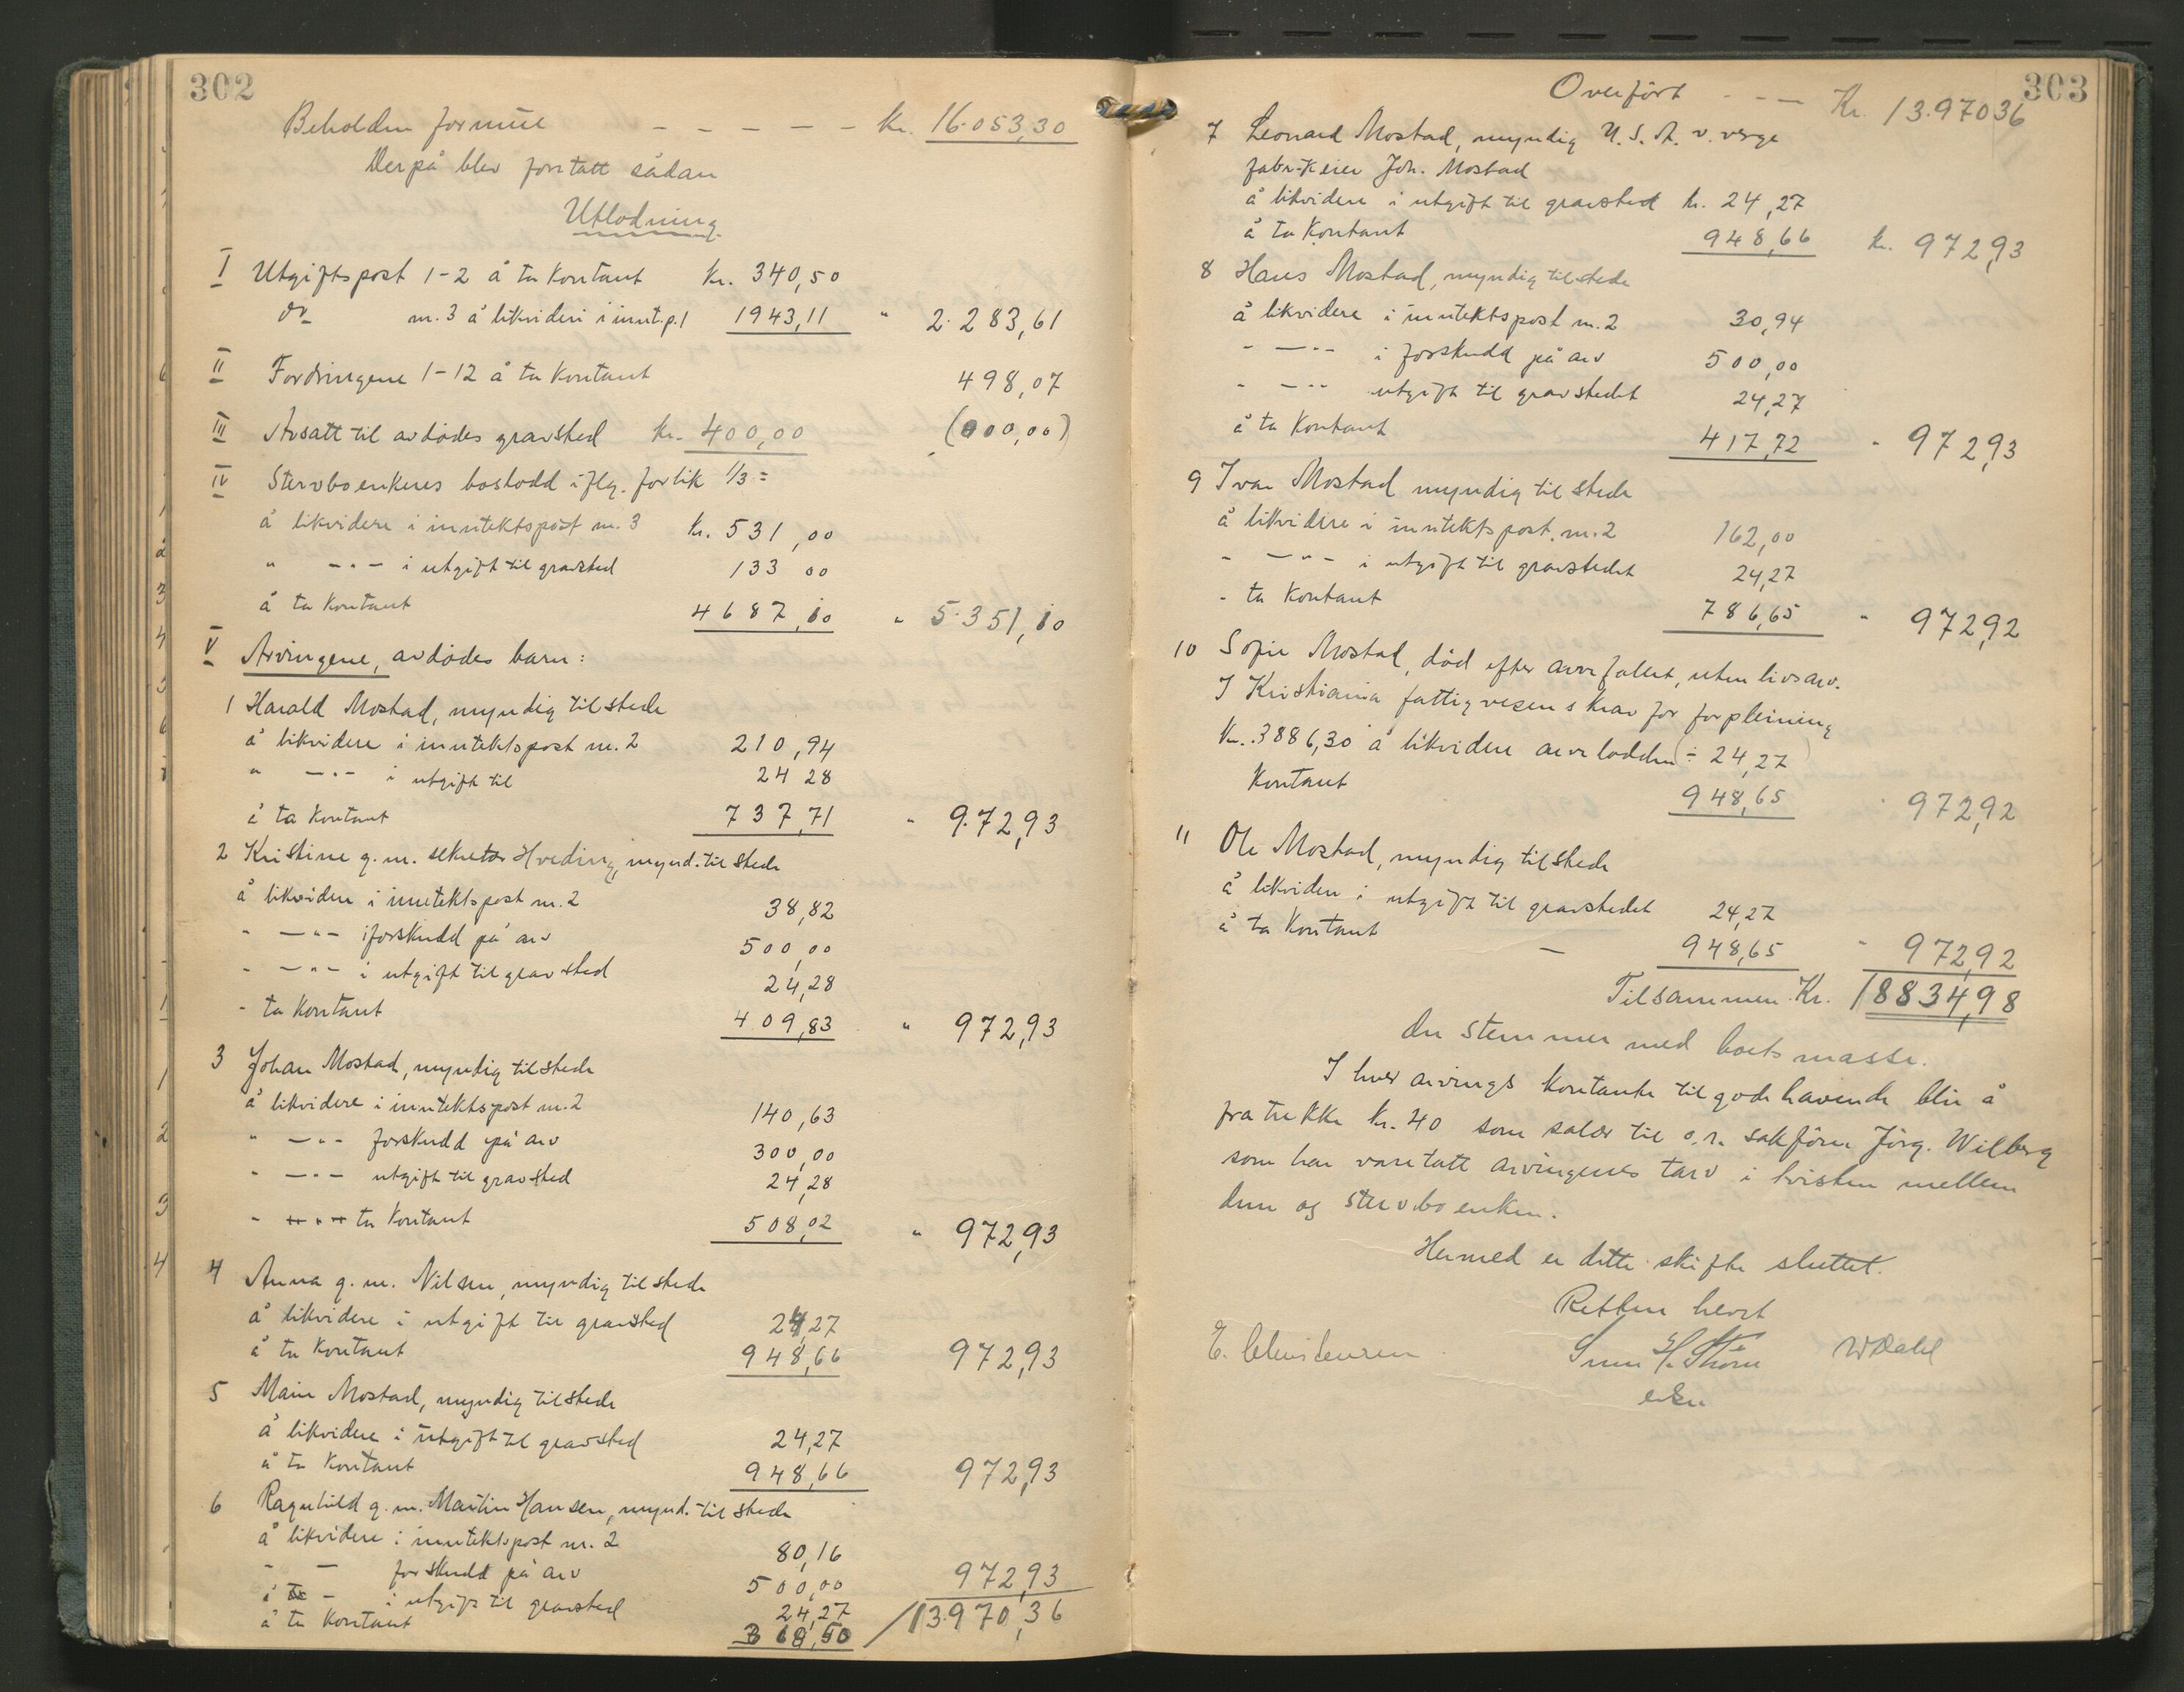 302
Beholden formue - - - - - kr. 16.053,30
Derpå blev foretatt sådan
Utlodning
I Utgiftspost 1-2 å ta kontant kr. 340,50
do nr. 3 å likvidere i innt.p.1 1943,11 " 2.283,61
II Fordringene 1-12 å ta kontant 498,07
III Avsatt til avdødes gravsted kr. 400,00 (000,00)
IV Stervboenkens boslodd iflg. forlik 1/3 =
å likvidere i inntektspost nr. 3 kr. 531,00
" -"- i utgift til gravsted 133 00
å ta kontant 4687,10 " 5.351,10
V Arvingene, avdødes barn:
1 Harald Mostad, myndig tilstede
å likvidere i inntektspost nr. 2 210,94
" -"- i utgift til 24 28
å ta kontant 737,71 " 972,93
2 Kristine g.m. sekretær Hveding, mynd. tilstede
å likvidere i inntektspost nr. 2 38,82
" -"- i forskudd på arv 500,00
" -"- i utgift til gravsted 24,28
- ta kontant 409,83 " 972,93
3 Johan Mostad, myndig tilstede
å likvidere i inntektspost nr. 2 140,63
" -"- forskudd på arv 300,00
" -"- utgift til gravsted 24,28
" ta kontant 508,02 " 972,93
4 Anna g.m. Nilsen, myndig tilstede
å likvidere i utgift til gravsted 24,27
å ta kontant 948,66 972,93
5 Marie Mostad, myndig tilstede
å likvidere i utgift til gravsted 24,27
å ta kontant 948,66 972,93
6 Ragnhild g.m. Martin Hansen, mynd. tilstede
å likvidere i inntektspost nr. 2 80,16
- - forskudd på arv 500,00 972,93
i utgift til gravsted 24,27
å ta kontant 368,50 13.970,36
303
Overført - - - Kr. 13.97036
7 Leonard Mostad, myndig U.S.A. v. verge
fabrikeier Joh. Mostad
å likvidere i utgift til gravsted kr. 24,27
å ta kontant 948,66 kr. 972,93
8 Hans Mostad, myndig tilstede
å likvidere i inntektspost nr. 2 30,94
" -"- i forskudd på arv 500,00
" -"- utgift til gravstedet 24,27
å ta kontant 417,72 " 972,93
9 Ivar Mostad myndig tilstede
å likvidere i inntektspost nr. 2 162,00
- -"- i utgift til gravstedet 24,27
- ta kontant 786,65 " 972,92
10 Sofie Mostad, død efter arvefallet, uten livsarv.
I Kristiania fattigvesens krav for forpleining
Kr. 3886,30 å likvidere arvelodden (÷ 24,27)
Kontant 948,65 972,92
11 Ole Mostad, myndig tilstede
å likvidere i utgift til gravstedet 24,27
å ta kontant - 948,65 " 972,92
Tilsammen Kr. 18834,98
der stemmer med boets masse.
I hver arvings kontante tilgodehavende blir å
fratrekke kr. 40 som salær til o.r. sakfører Jörg. Wilberg
som har varetatt arvingenes tarv i tvisten mellem
dem og stervboenken.
Hermed er dette skifte sluttet.
Retten hevet
E. Christensen Sven H. Thorn W Dahl